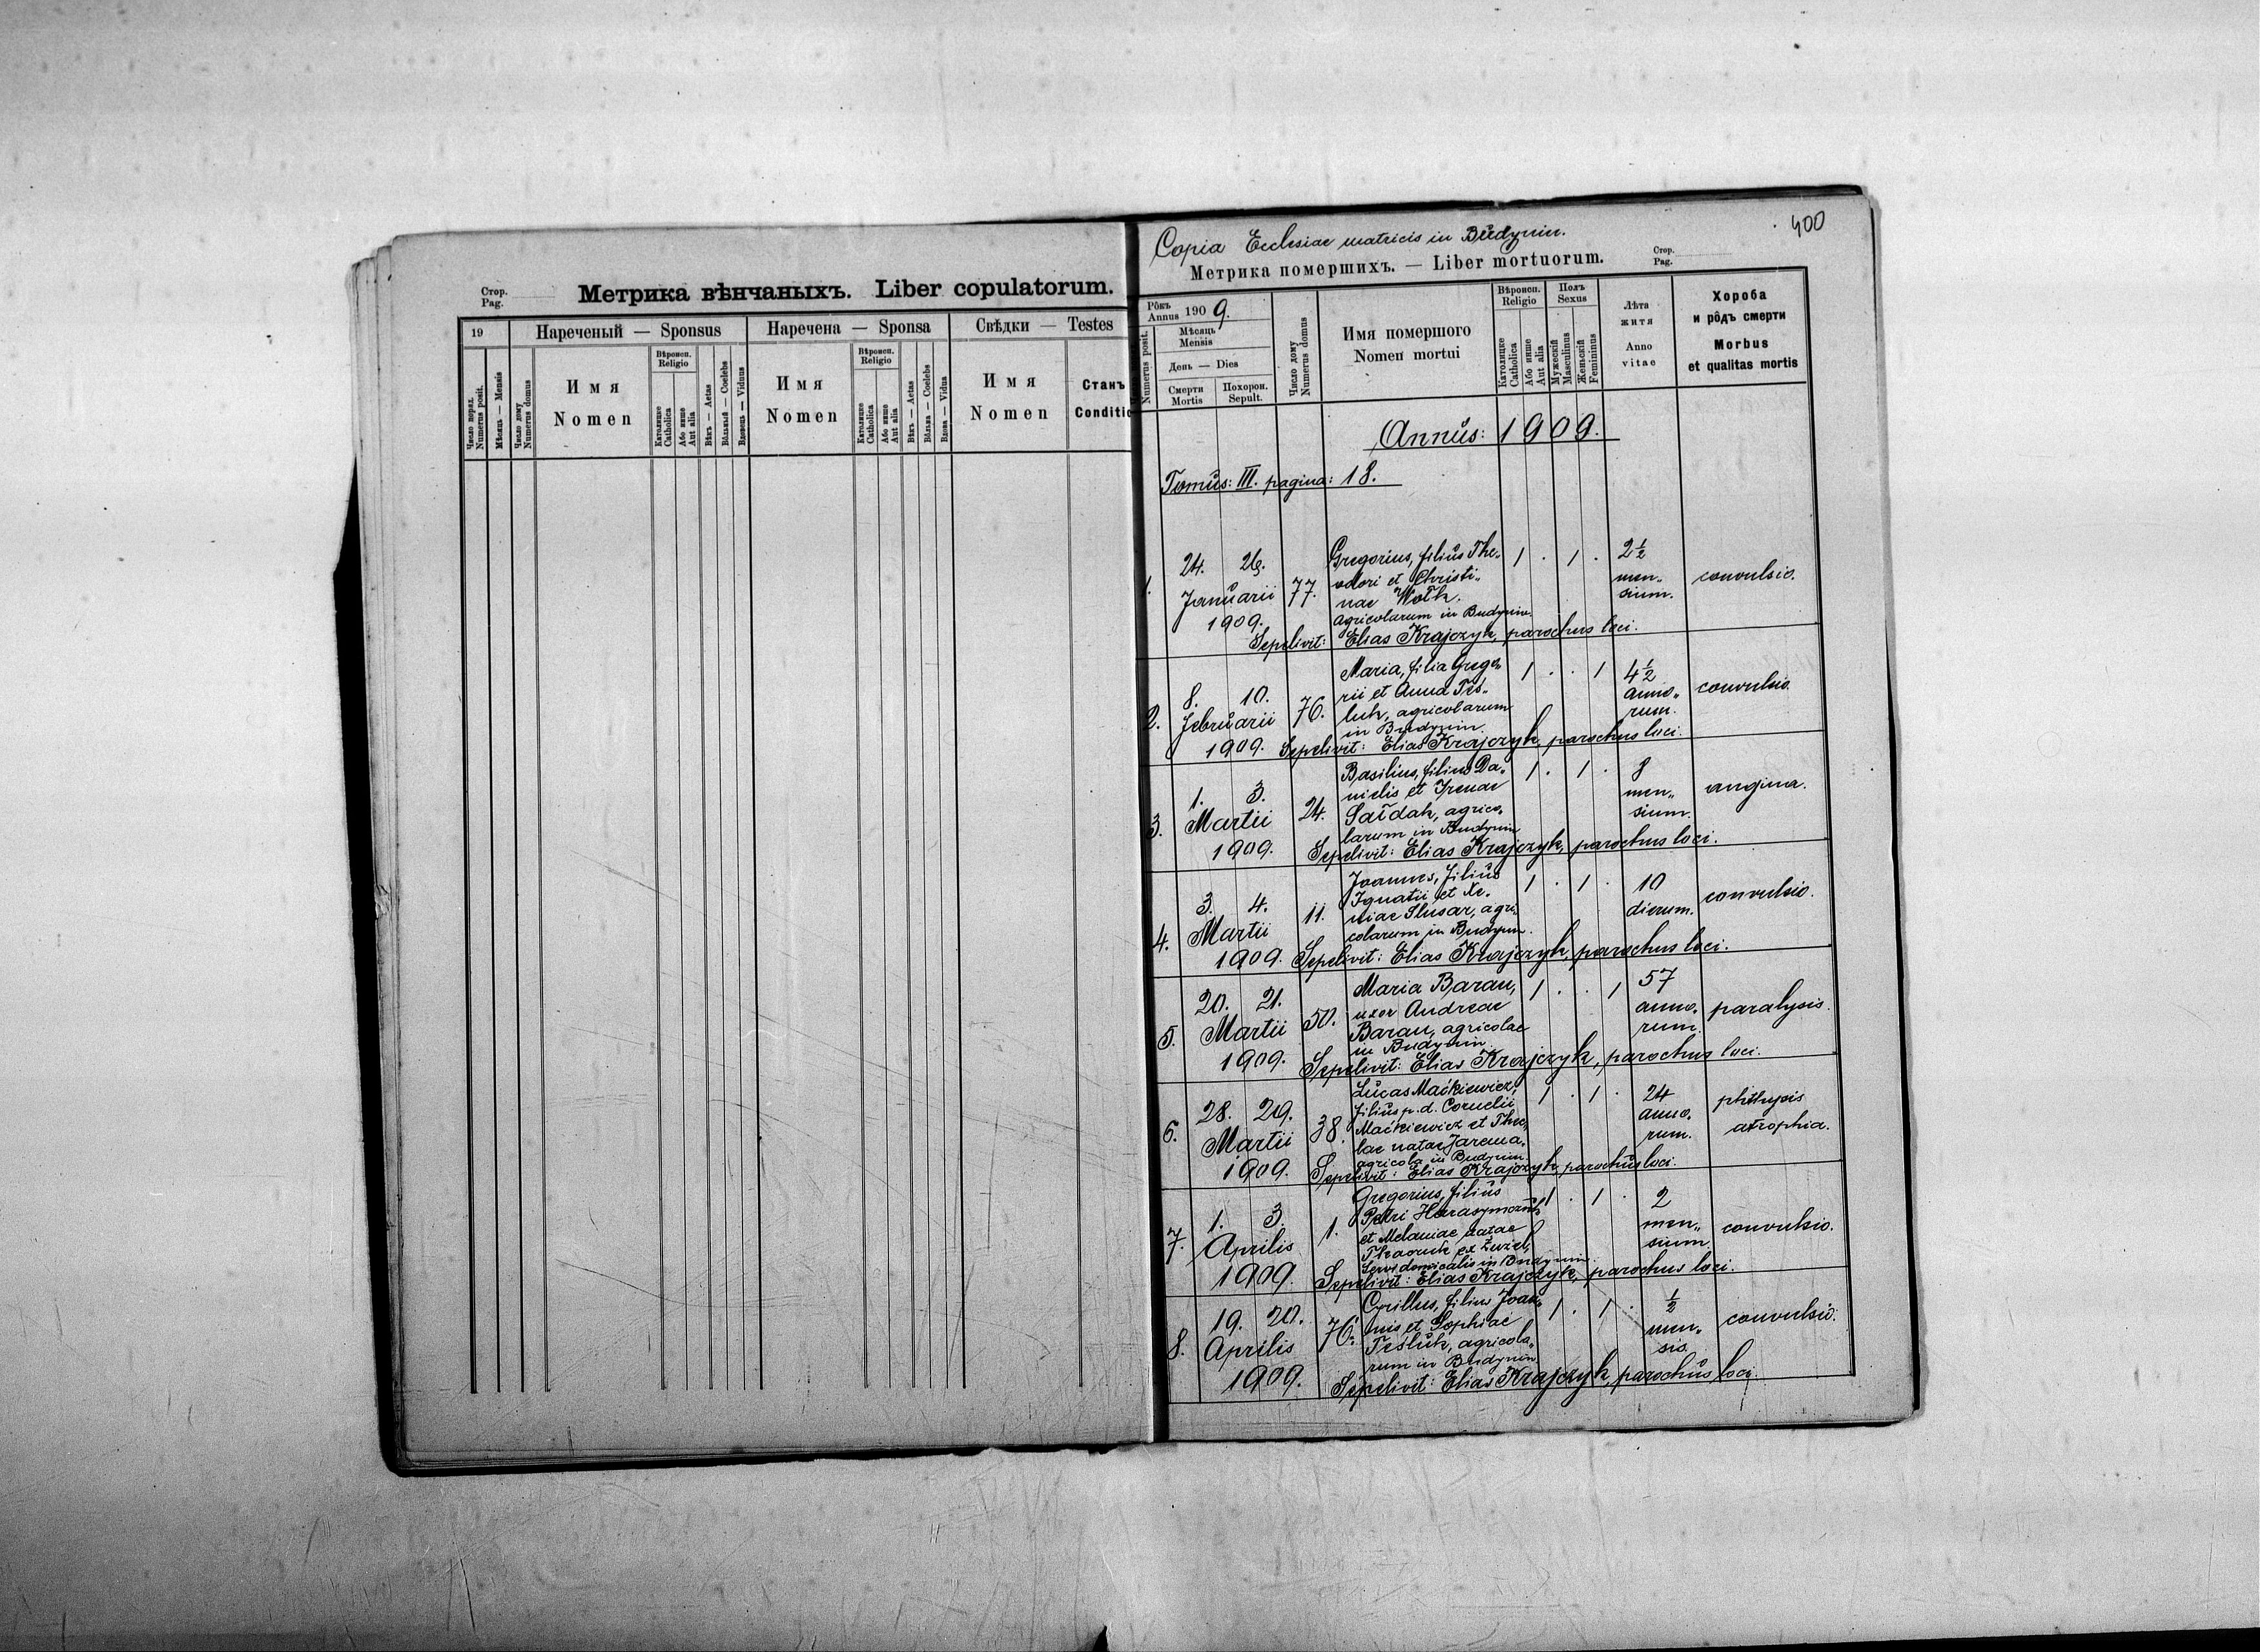 Стор.
Pag.
Метрика вѣнчаныхъ. Liber copulatorum.
19
Нареченый — Sponsus
Наречена — Sponsa
Свѣдки — Testes
Число поряд.
Numerus posit.
Мѣсяць — Mensis
Число дому
Numerus domus
Имя
Nomen
Вѣроисп.
Religio
Католицке
Catholica
Або инше
Aut alia
Вѣкъ — Aetas
Вôльный — Coelebs
Вдовець — Viduus
Имя
Nomen
Вѣроисп.
Religio
Католицке
Catholica
Або инше
Aut alia
Вѣкъ — Aetas
Вôльна — Coelebs
Вдова — Vidua
Имя
Nomen
Станъ
Conditio
400
Copia Ecclesiae matricis in Budynin.
Метрика помершихъ. — Liber mortuorum.
Стор.
Pag.
Numerus posit.
Рôкъ
Annus 1909.
Мѣсяць
Mensis
День — Dies
Смерти
Mortis
Похорон.
Sepult.
Число дому
Numerus domus
Имя помершого
Nomen mortui
Вѣроисп.
Religio
Католицке
Catholica
Або инше
Aut alia
Полъ
Sexus
Мужескій
Masculinus
Женьскій
Femininus
Лѣта
житя
Anno
vitae
Хороба
и рôдъ смерти
Morbus
et qualitas mortis
Annus: 1909.
Tomus: III. pagina: 18.
1. 24. 26. Januarii 1909. 77.
Gregorius, filius The„
odori et Christi„
nae Wołk.
agricolarum in Budynin.
1 . 1 . 2½
men„
sium.
convulsio.
Sepelivit: Elias Krajczyk, parochus loci.
2. 8. 10. Februarii 1909. 76.
Maria, filia Grego„
rii et Anna Tes„
luk, agricolarum
in Budynin.
1 . . 1 4½
anno„
rum.
convulsio.
Sepelivit: Elias Krajczyk, parochus loci.
3. 1. 3. Martii 1909. 24.
Basilius, filius Da„
nielis et Irenae
Sajdak, agrico„
larum in Budynin
1 . 1 . 8
men„
sium.
angina.
Sepelivit: Elias Krajczyk, parochus loci.
4. 3. 4. Martii 1909. 11.
Joannes, filius
Ignatii et Xe„
niae Slusar, agri„
colarum in Budynin.
1 . 1 . 10
dierum.
convulsio.
Sepelivit: Elias Krajczyk, parochus loci.
5. 20. 21. Martii 1909. 50.
Maria Baran,
uxor Andreae
Baran, agricolae
in Budynin.
1 . . 1 57
anno„
rum.
paralysis.
Sepelivit: Elias Krajczyk, parochus loci.
6. 28. 29. Martii 1909. 38.
Lucas Maćkiewicz,
filius p. d. Cornelii
Maćkiewicz et Thec„
lae natae Jarema.
agricola in Budynin.
1 . 1 . 24
anno„
rum.
phthysis
atrophia.
Sepelivit: Elias Krajczyk, parochus loci.
7. 1. 3. Aprilis 1909. 1.
Gregorius, filius
Petri
et Melaniae natae
ex
in Budynin.
1 . 1 . 2
men„
sium
convulsio.
Sepelivit: Elias Krajczyk, parochus loci.
8. 19. 20. Aprilis 1909. 76.
Cyrillus, filius Joan„
nis et Sophiae
Tesluk, agricola„
rum in Budynin
1 . 1 . ½
men„
sis.
convulsio.
Sepelivit: Elias Krajczyk, parochus loci.